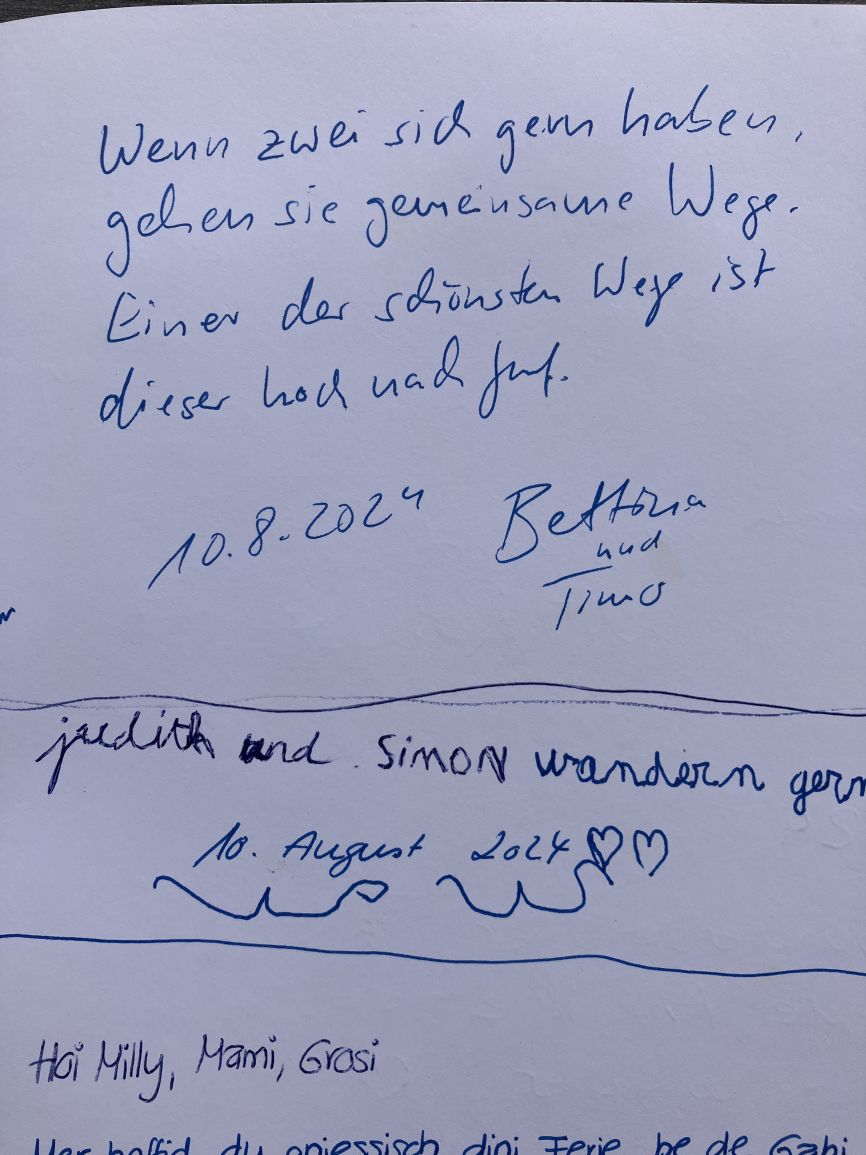 Wenn zwei sich gern haben,
gehen sie gemeinsame Wege.
Einer der schönsten Wege ist
dieser hoch nach Juf.
10.8.2024 Bettina
und
Timo
judith und Simon wandern gern
10. August 2024 ♡♡
Hoi Milly, Mami, Grosi
Mer hoffid, du gniessisch dini Ferie be de Gabi